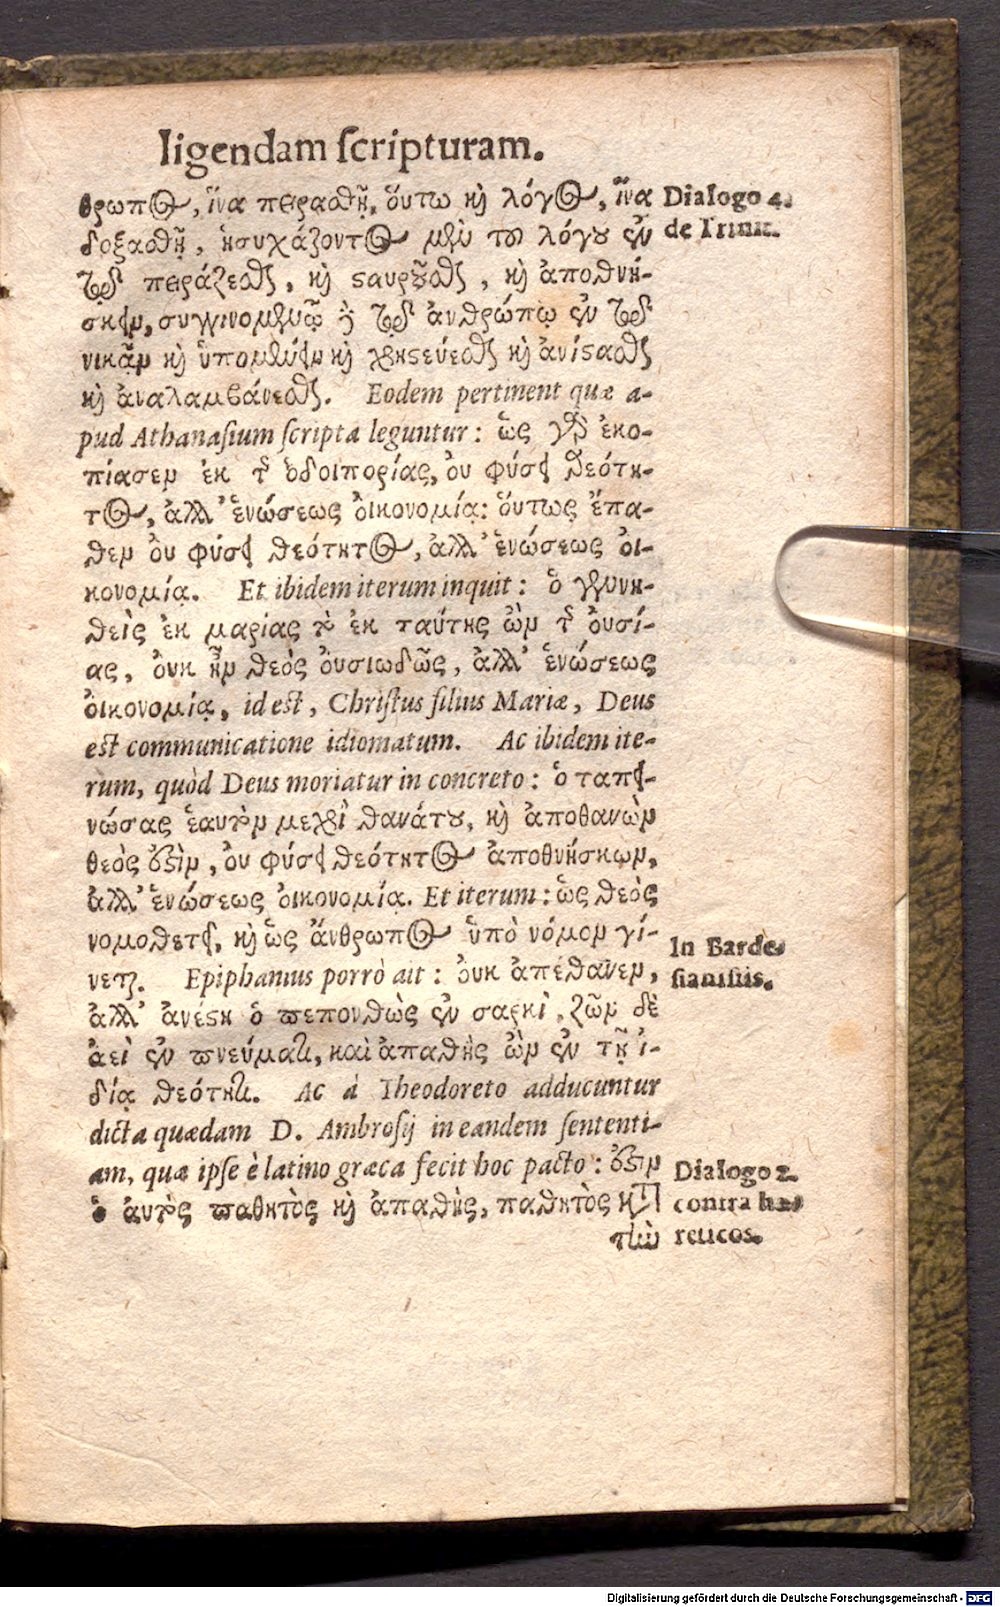 ligendam ſcripturam.
θρωπος, ἵνα πειρασθῇ, ὅυτω καὶ λόγος, ἵνα
δοξασθῇ, ἡσυχάζοντος μὲν τοῦ λόγου ἐν
τῷ πειράζεσθαι, καὶ σαυροῦσθαι, καὶ ἀποθνή-
σκειν, συγγινομένου δὲ τῷ ἀνθρώπῳ ἐν τῷ
νικᾶν καὶ ὑπομένειν καὶ χρηστεύεσθαι καὶ ἀνίστασθαι
καὶ ἀναλαμβάνεσθαι. Eodem pertinent quæ a-
pud Athanaſium ſcripta leguntur: ὡς γὰρ ἐκο-
πίασεν ἐκ τῆς ὁδοιπορίας, ὀυ φύσει θεότη-
τος, ἀλλ' ἑνώσεως ὀικονομίᾳ: ὅυτως ἔπα-
θεν ὀυ φύσει θεότητος, ἀλλ' ἑνώσεως ὀι-
κονομίᾳ. Et ibidem iterum inquit: ὁ γεννη-
θεὶς ἐκ μαρίας τὸ ἐκ ταύτης ὢν τῆς ὀυσί-
ας, ὀυκ ἦν θεὸς ὀυσιωδῶς, ἀλλ' ἑνώσεως
ὀικονομίᾳ, id eſt, Chriſtus filius Mariæ, Deus
eſt communicatione idiomatum. Ac ibidem ite-
rum, quòd Deus moriatur in concreto: ὁ ταπει-
νώσας ἑαυτὸν μεχρὶ θανάτου, καὶ ἀποθανὼν
θεὸς ἐστὶν, ὀυ φύσει θεότητος ἀποθνήσκων,
ἀλλ' ἑνώσεως ὀικονομίᾳ. Et iterum: ὡς θεὸς
νομοθετεῖ, καὶ ὡς ἄνθρωπος ὑπὸ νόμον γί-
νεται. Epiphanius porrò ait: ὀυκ ἀπέθανεν,
ἀλλ' ἀνέστη ὁ πεπονθὼς ἐν σαρκὶ, ζῶν δὲ
ἀεὶ ἐν πνεύματι, καὶ ἀπαθὴς ὢν ἐν τῇ ἰ-
δίᾳ θεότητι. Ac à Theodoreto adducuntur
dicta quædam D. Ambroſij in eandem ſententi-
am, quæ ipſe è latino græca fecit hoc pacto: ἐστιν
ὁ ἀυτὸς παθητὸς καὶ ἀπαθὴς, παθητὸς κατὰ
τὴν
Dialogo 4.
de Trinit.
In Barde-
ſianiſtis.
Dialogo 2.
contra hæ-
reticos.
Digitalisierung gefördert durch die Deutsche Forschungsgemeinschaft - DFG